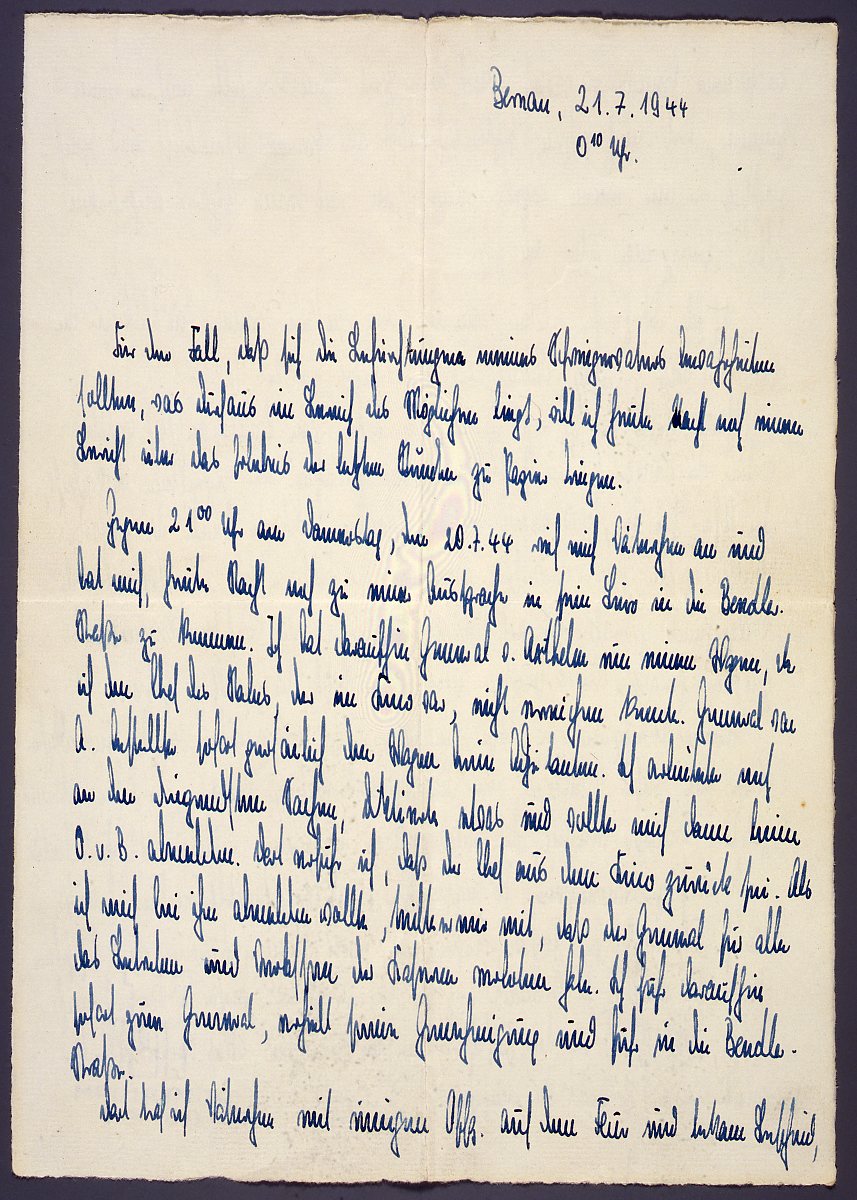 Bernau, 21.7.1944
0¹⁰ Uhr.
Für den Fall, daß sich die Befürchtungen meines Schwiegervaters bewahrheiten
sollten, was durchaus im Bereich des Möglichen liegt, will ich heute Nacht noch einen
Bericht über das Erlebnis der letzten Stunden zu Papier bringen.
Gegen 21⁰⁰ Uhr am Donnerstag, den 20.7.44 rief mich an und
bat mich, heute Nacht noch zu einer Aussprache in sein Büro in die Bendler-
straße zu kommen. Ich bat daraufhin General v. um einen Wagen, da
ich den Chef des Stabes, der im Kino war, nicht erreichen konnte. General von
A. bestellte sofort persönlich den Wagen beim Adjutanten. Ich arbeitete noch
an den dringendsten Sachen, diktierte etwas und wollte mich dann beim
O.v.B. abmelden. Dort erfuhr ich, daß der Chef aus dem Kino zurück sei. Als
ich mich bei ihm abmelden wollte, teilte er mir mit, daß der General für alle
das Betreten und Verlassen der Kaserne verboten habe. Ich fuhr daraufhin
sofort zum General, erhielt seine Genehmigung und fuhr in die Bendler-
straße.
Dort traf ich mit einigen Offz. auf dem Flur und bekam Bescheid,